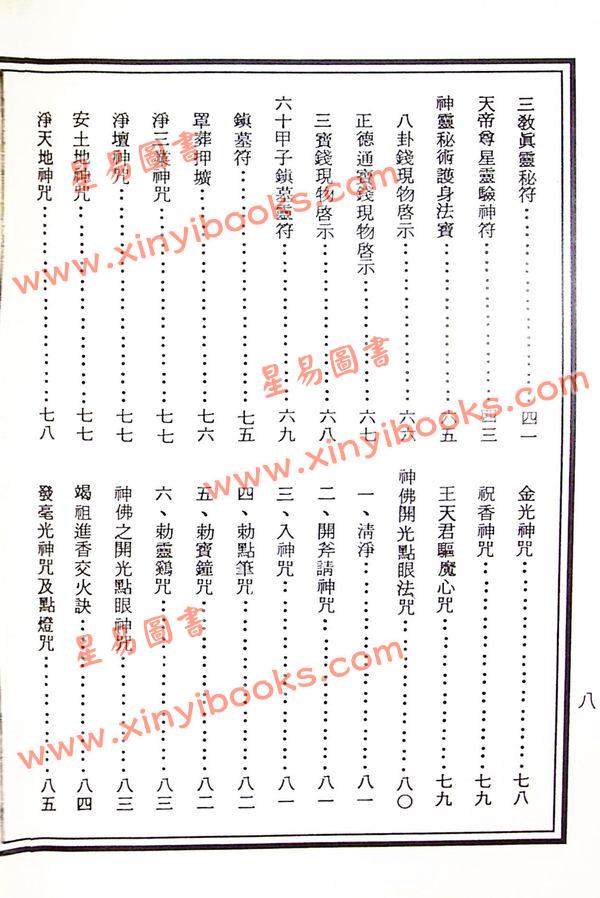 三教眞靈秘符……四一
天帝尊星靈驗神符……四三
神靈秘術護身法寶……六五
八卦錢現物啓示……六六
正德通寶錢現物啓示……六七
三寶錢現物啓示……六八
六十甲子鎮墓靈符……六九
鎮墓符……七五
罩葬押壙……七六
淨三業神咒……七七
淨壇神咒……七七
安土地神咒……七七
淨天地神咒……七八
金光神咒……七八
祝香神咒……七九
王天君驅魔心咒……七九
神佛開光點眼法咒……八〇
一、清淨……八一
二、開斧請神咒……八一
三、入神咒……八一
四、勅點筆咒……八二
五、勅寶鐘咒……八二
六、勅靈鷄咒……八三
神佛之開光點眼神咒……八三
謁祖進香交火訣……八四
發毫光神咒及點燈咒……八五
八
星易圖書
www.xinyibooks.com
星易圖書
www.xinyibooks.com
星易圖書
www.xinyibooks.com